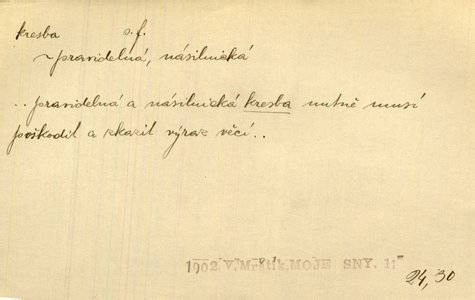 kresba s.f.
~pravidelná, násilnická
..pravidelná a násilnická kresba nutně musí
poškodit a zkazit výraz věcí..
1902 V. Mrštík, MOJE SNY. 1;
24,30